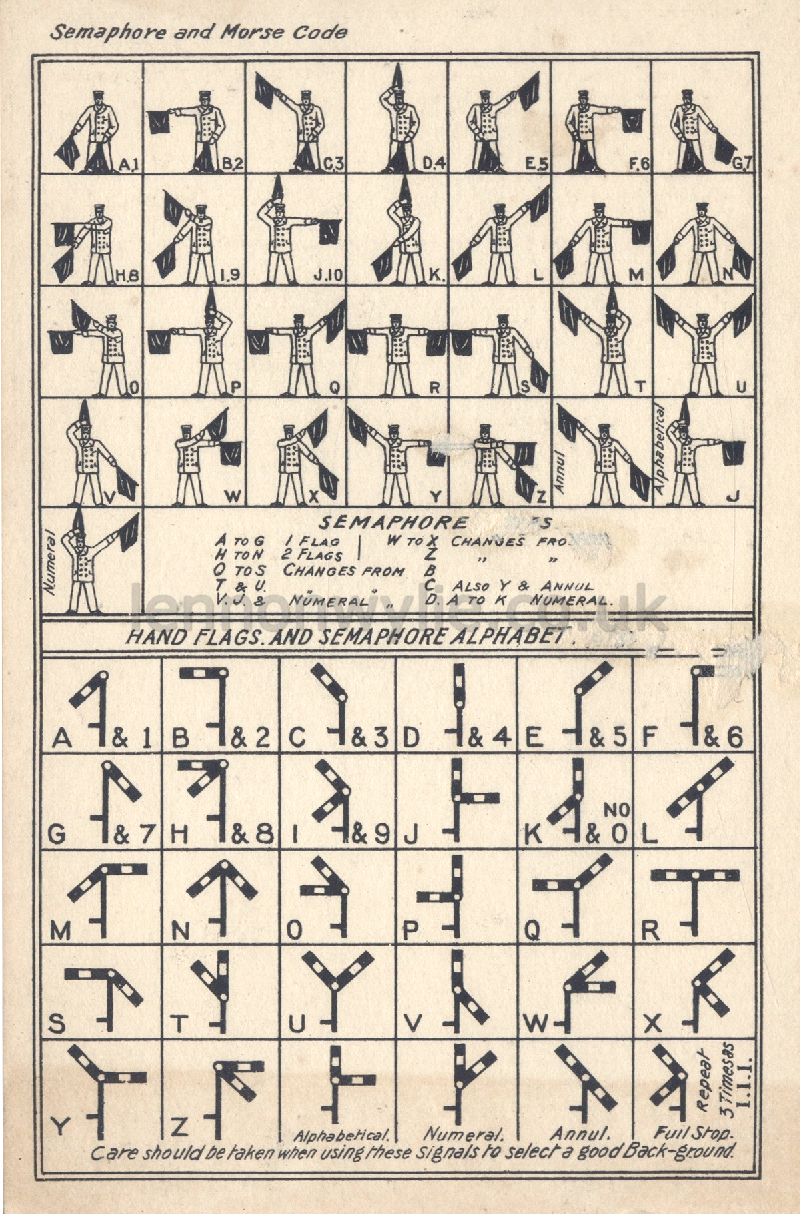 Semaphore and Morse Code
A.1 B.2 C.3 D.4 E.5 F.6 G.7
H.8 I.9 J.10 K. L M N
O P Q R S T U
V W X Y Z Annul Alphabetical J
Numeral
SEMAPHORE
A TO G 1 FLAG | W TO X CHANGES
H TO N 2 FLAGS | Z " "
O TO S CHANGES FROM B
T & U. " " C ALSO Y & ANNUL
V. J. & "NUMERAL" „ D. A TO K NUMERAL.
lennonwylie.co.uk
HAND FLAGS. AND SEMAPHORE ALPHABET.
A & 1 B & 2 C & 3 D & 4 E & 5 F & 6
G & 7 H & 8 I & 9 J K & 0 NO L
M N O P Q R
S T U V W X
Y Z Alphabetical. Numeral. Annul. Full Stop. Repeat 3 Timesas I.I.I.
Care should be taken when using these signals to select a good Back-ground.